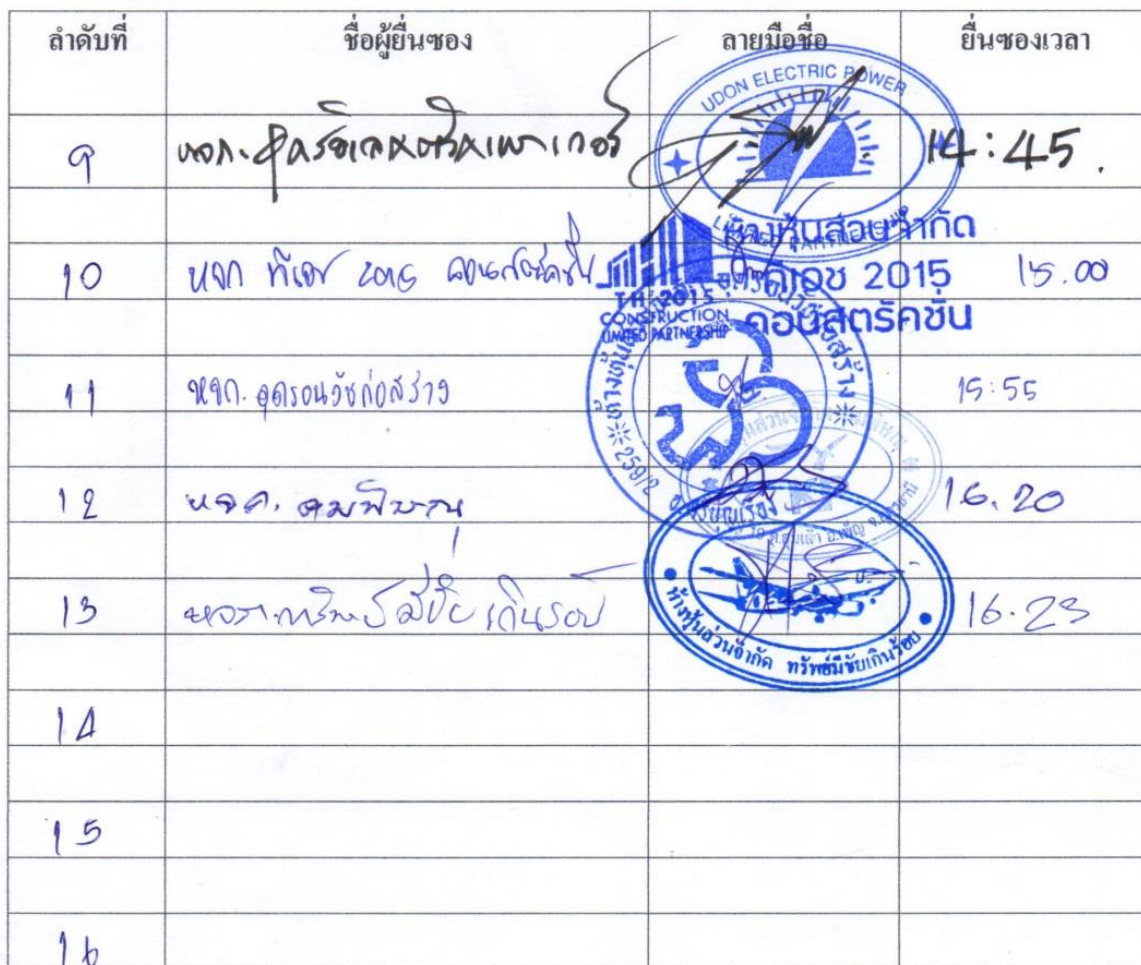 ลำดับที่ ชื่อผู้ยื่นซอง ลายมือชื่อ ยื่นซองเวลา
9 หจก. อุดรอิเลคตริคเพาเวอร์ 14:45.
UDON ELECTRIC POWER
LIMITED PARTNERSHIP
10 หจก ทีเอช 2015 คอนสตรัคชั่น 15.00
ห้างหุ้นส่วนจำกัด
ทีเอช 2015
คอนสตรัคชั่น
TH 2015
CONSTRUCTION
LIMITED PARTNERSHIP
11 หจก. อุดรธนวัชก่อสร้าง 15:55
259/2
12 หจก. 16.20
13 หจก. ทรัพย์มีชัยเกินร้อย 16.23
ห้างหุ้นส่วนจำกัด ทรัพย์มีชัยเกินร้อย
14
15
16